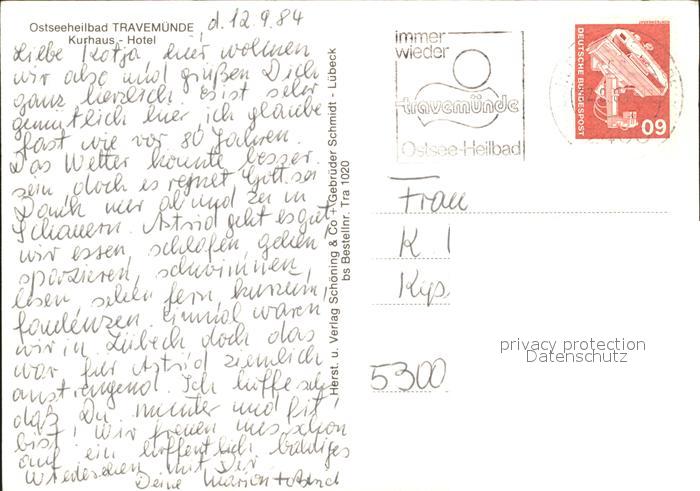 Ostseeheilbad TRAVEMÜNDE
Kurhaus - Hotel
d. 12.9.84
Liebe Katja hier wohnen
wir also und grüßen Dich
ganz herzlich. es ist sehr
gemütlich hier, ich glaube
fast wie vor 80 Jahren.
Das Wetter könnte besser
sein doch es regnet Gott sei
Dank nur ab und zu in
Schauern. Astrid geht es gut,
wir essen, schlafen gehen
spazieren, schwimmen,
lesen sehen fern, kurzum,
faulenzen. Einmal waren
wir in Lübeck doch das
war für Astrid ziemlich
anstrengend. Ich hoffe sehr
daß Du munter und fit
bist! Wir freuen uns schon
auf ein hoffentlich baldiges
Wiedersehen mit Dir
Deine Marion + Astrid
Herst. u. Verlag Schöning & Co + Gebrüder Schmidt - Lübeck
bs Bestellnr. Tra 1020
immer
wieder
travemünde
Ostsee-Heilbad
DEUTSCHE BUNDESPOST
60
Frau
K
5300
privacy protection
Datenschutz